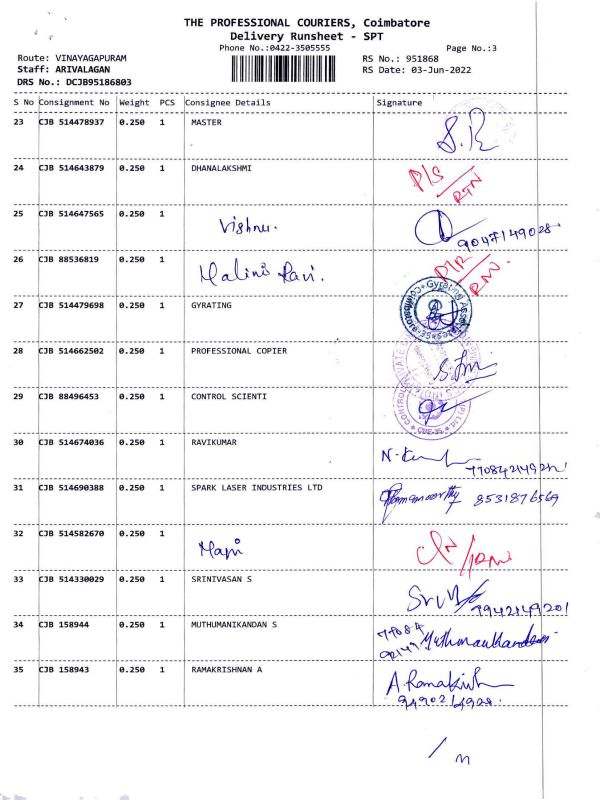 THE PROFESSIONAL COURIERS, Coimbatore
Delivery Runsheet - SPT
Phone No.:0422-3505555 Page No.:3
Route: VINAYAGAPURAM RS No.: 951868
Staff: ARIVALAGAN RS Date: 03-Jun-2022
DRS No.: DCJB95186803
S No Consignment No Weight PCS Consignee Details Signature
23 CJB 514478937 0.250 1 MASTER
24 CJB 514643879 0.250 1 DHANALAKSHMI
RTN
25 CJB 514647565 0.250 1 Vishnu. 9047149028
26 CJB 88536819 0.250 1 Malini Ravi.
27 CJB 514479698 0.250 1 GYRATING
28 CJB 514662502 0.250 1 PROFESSIONAL COPIER
29 CJB 88496453 0.250 1 CONTROL SCIENTI
30 CJB 514674036 0.250 1 RAVIKUMAR
31 CJB 514690388 0.250 1 SPARK LASER INDUSTRIES LTD 8531876569
32 CJB 514582670 0.250 1 Mani
33 CJB 514330029 0.250 1 SRINIVASAN S
7942149201
34 CJB 158944 0.250 1 MUTHUMANIKANDAN S
35 CJB 158943 0.250 1 RAMAKRISHNAN A A. Ramakrish